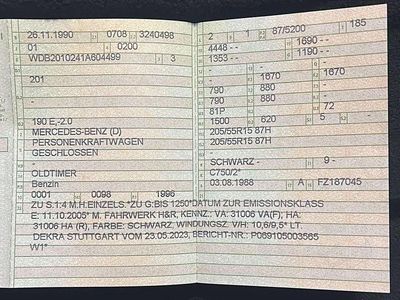 26.11.1990 0708 3240498
01 0200
WDB2010241A604499 3
201
-
190 E,-2.0
MERCEDES-BENZ (D)
PERSONENKRAFTWAGEN
GESCHLOSSEN
-
OLDTIMER
Benzin
0001 0098 1996
2 1 87/5200 185
4448 - - 1690 - -
1353 - - 1190 - -
- 1670 1670
790 880 - -
790 880 - -
81P - 72
1500 620 5 -
205/55R15 87H
205/55R15 87H
-
SCHWARZ - 9 -
C750/2*
03.08.1988 A FZ187045
ZU S.1:4 M.H.EINZELS.*ZU G:BIS 1250*DATUM ZUR EMISSIONSKLASS
E: 11.10.2005* M. FAHRWERK H&R, KENNZ.: VA: 31006 VA(F); HA:
31006 HA (R), FARBE: SCHWARZ, WINDUNGSZ. V/H: 10,6/9,5* LT.
DEKRA STUTTGART VOM 23.05.2023, BERICHT-NR.: P069105003565
W1*